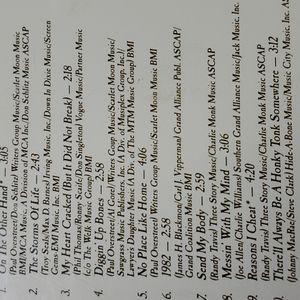 1. On The Other Hand* - 3:05
(Paul Overstreet/Don Schlitz) Writers Group Music/Scarlet Moon Music
BMI/MCA Music, A Division of MCA Inc./Don Schlitz Music ASCAP
2. The Storms Of Life - 2:43
Troy Seals/Max D. Barnes) Irving Music, Inc./Down In Dixie Music/Screen
Gems-EMI Music Inc. BMI
3. My Heart Cracked (But It Did Not Break) - 2:18
(Phil Thomas/Ronny Scaife/Don Singleton) Vogue Music/Partner Music
(c/o The Welk Music Group) BMI
4. Diggin' Up Bones - 2:58
(Paul Overstreet/ Writers Group Music/Scarlet Moon Music/
Sawgrass Music Publishers, Inc. (A Div. of Musiplex Group, Inc.)/
Lawyers Daughter Music (A Div. of The MTM Music Group) BMI
5. No Place Like Home - 4:06
(Paul Overstreet) Writers Group Music/Scarlet Moon Music BMI
6. 1982 - 2:58
(James H. Blackmon/Carl J. Vipperman) Grand Alliance Publ. ASCAP/
Grand Coalition Music BMI
7. Send My Body - 2:59
(Randy Travis) Three Story Music/Charlie Monk Music ASCAP
8. Messin' With My Mind - 3:06
(Joe Allen/Charlie Williams) Southern Grand Alliance Music/Jack Music, Inc.
9. Reasons I Cheat* - 4:20
(Randy Travis) Three Story Music/Charlie Monk Music ASCAP
There'll Always Be A Honky Tonk Somewhere - 3:12
(Johnny MacRae/Steve Clark) Hide-A-Bone Music/Music City Music, Inc.